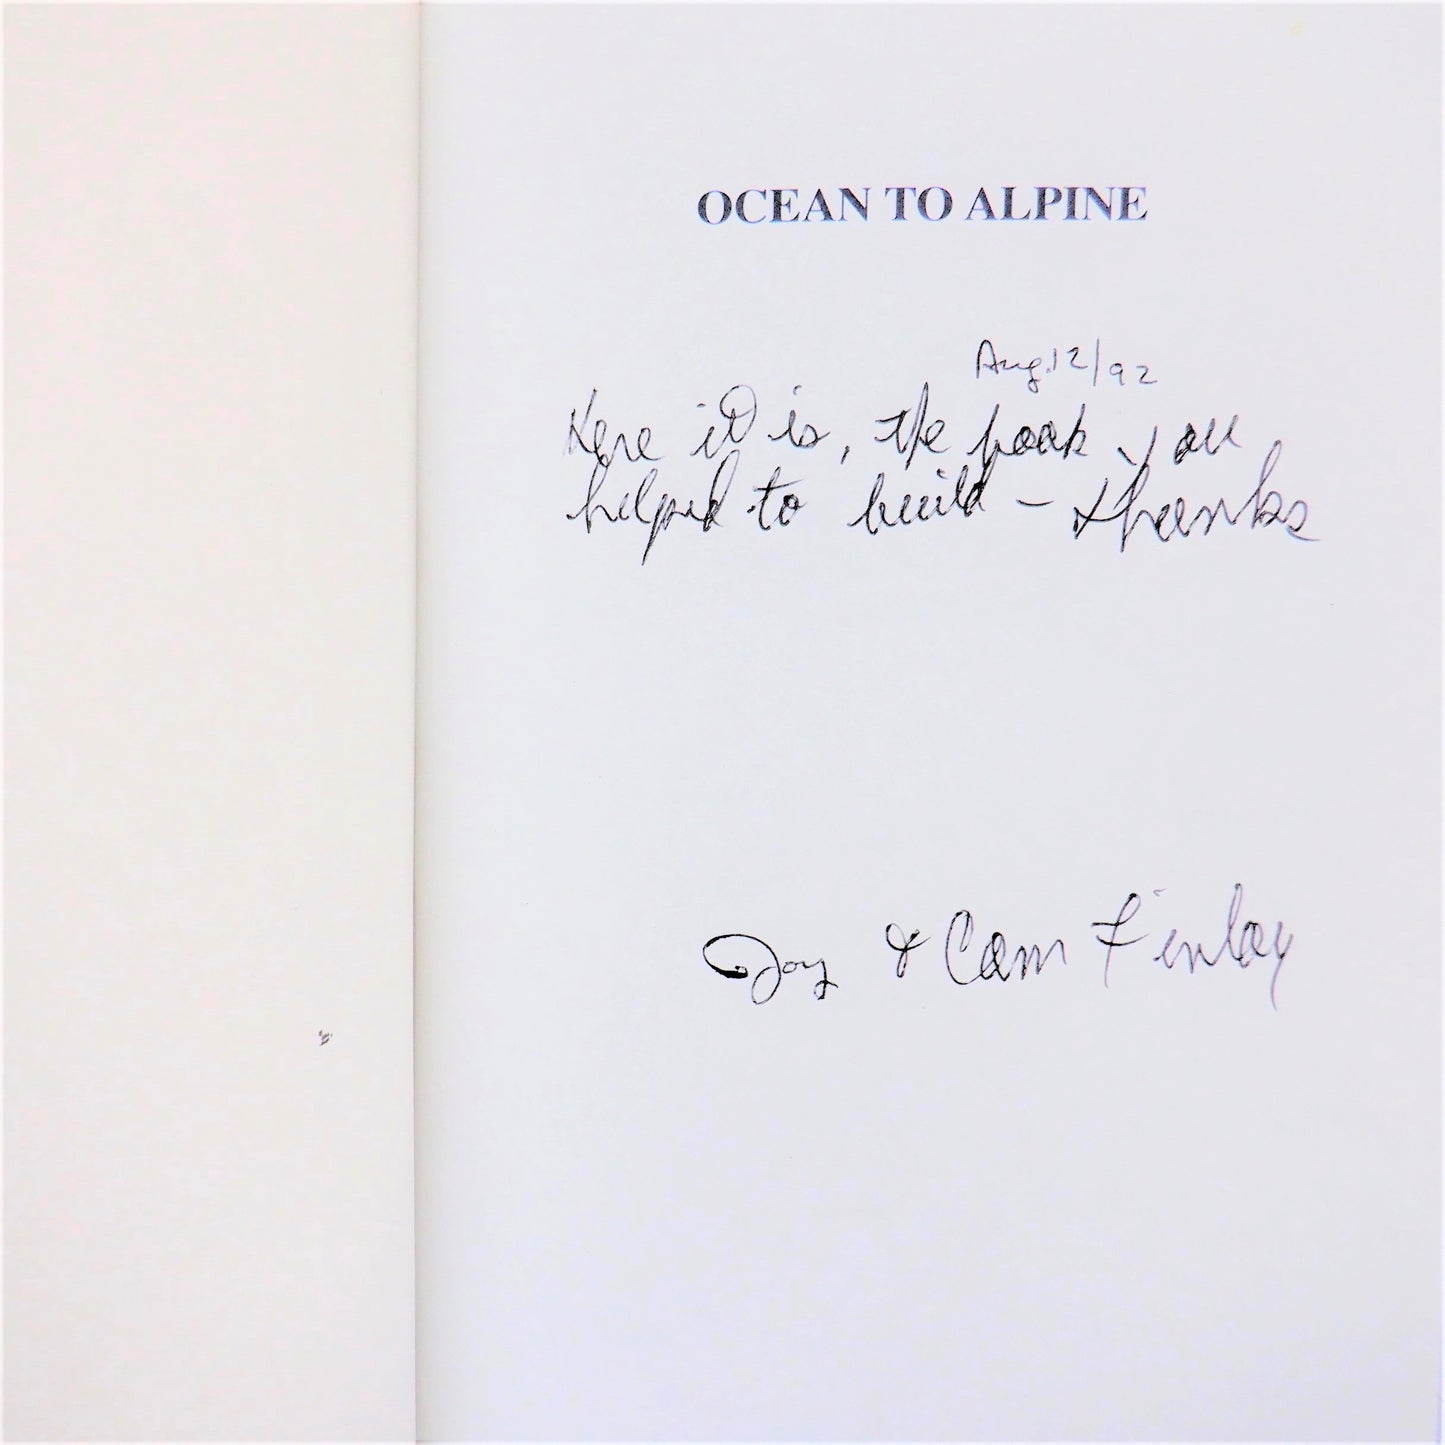 OCEAN TO ALPINE
Aug.12/92
Here it is, the book you
helped to build - thanks
Joy & Cam Finlay